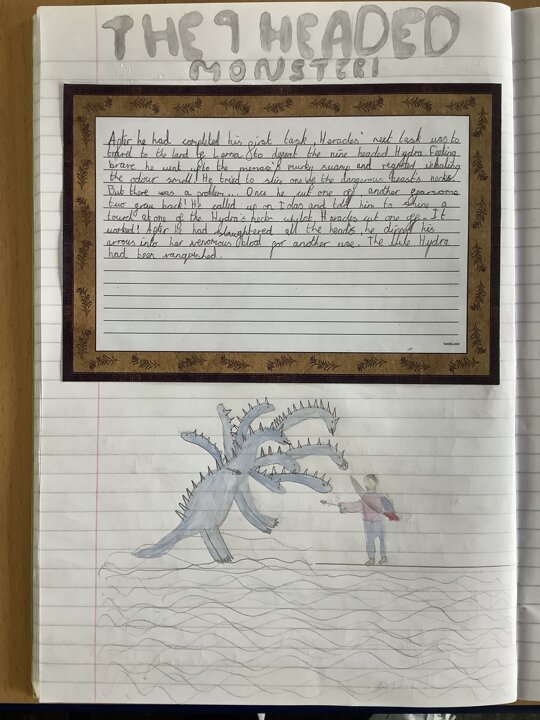 THE 9 HEADED
MONSTER!
After he had completed his first task, Heracles' next task was to
travel to the land of Lerna to defeat the nine headed Hydra. Feeling
brave he went into the menace's murky swamp and regreted inhaling
the odour smell! He tried to slice one of the dangerous beasts necks.
But there was a problem... Once he cut one off another gruesome
two grew back! He called up on Iolas and told him to shine a
touch at one of the Hydra's necks whilst Heracles cut one off. It
worked! After he had slaughtered all the heads, he dipped his
arrows into her venomous blood for another use. The vile Hydra
had been vanquished.
twinkl.com